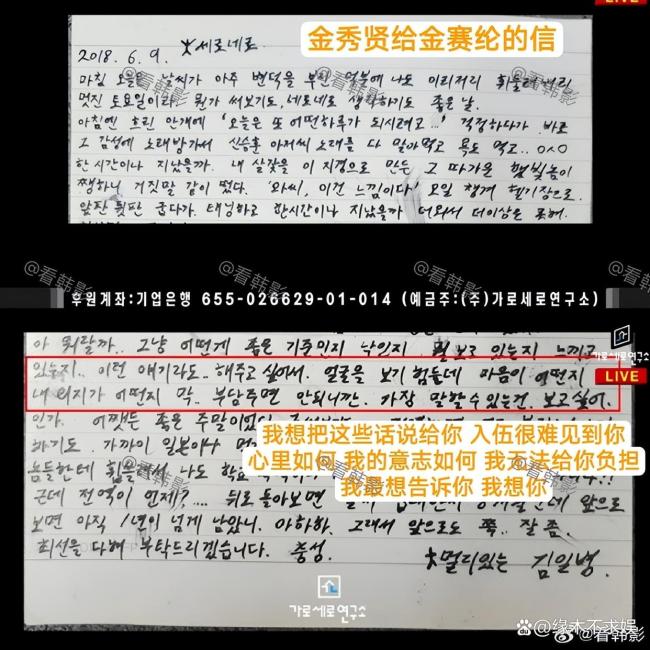 LIVE
金秀贤给金赛纶的信
2018. 6. 9. 세로네로
마침 오늘은 날씨가 아주 변덕을 부린 덕분에 나도 이리저리 휘둘려버리
멋진 토요일이라 뭔가 써보기도, 네로네로 생각하기도 좋은 날.
아침엔 흐린 안개에 '오늘은 또 어떤하루가 되시려고...' 걱정하다가 바로
그 감성에 노래방가서 신승훈 아저씨 노래를 다 말아먹고 욕도 먹고.. 0^0
한시간이나 지났을까. 내 살갗을 이 지경으로 만든 그 따가운 햇빛놈이
쨍하니 거짓말 같이 떴다. '와씨, 이건 느낌이다' 오일 챙겨 헬기장으로.
앞판 뒷판 굽다가. 태닝하고 한시간이나 지났을까 더워서 더이상은 못해.
@看韩影
@看韩影
@看韩影
후원계좌:기업은행 655-026629-01-014 (예금주:(주)가로세로연구소)
@看韩影
아 뭐랄까.. 그냥 어떤게 좋은 기준인지 낙인지 뭘 보고 있는지 느끼고
가로세로연구소
있는지.. 이런 얘기라도.. 해주고 싶어서. 얼굴을 보기 힘든데 마음이 어떤지
LIVE
내 의지가 어떤지 막.. 부담주면 안되니깐. 가장 말할 수 있는건, 보고싶어.
인가. 어쨌든 좋은 주말이었
我想把这些话说给你 入伍很难见到你
하기도. 가까이 일본이나
心里如何 我的意志如何 我无法给你负担
놈들한테 휘둘려서 나도
我最想告诉你 我想你
근데 전역이 언제?.... 뒤로 돌아보면 앞으로
보면 아직 1년이 넘게 남았니. 아하하. 그래서 앞으로도 쭉. 잘 좀.
최선을 다해 부탁드리겠습니다. 충성.
멀리있는 김일병.
가로세로연구소
@缘木不求娱
@看韩影